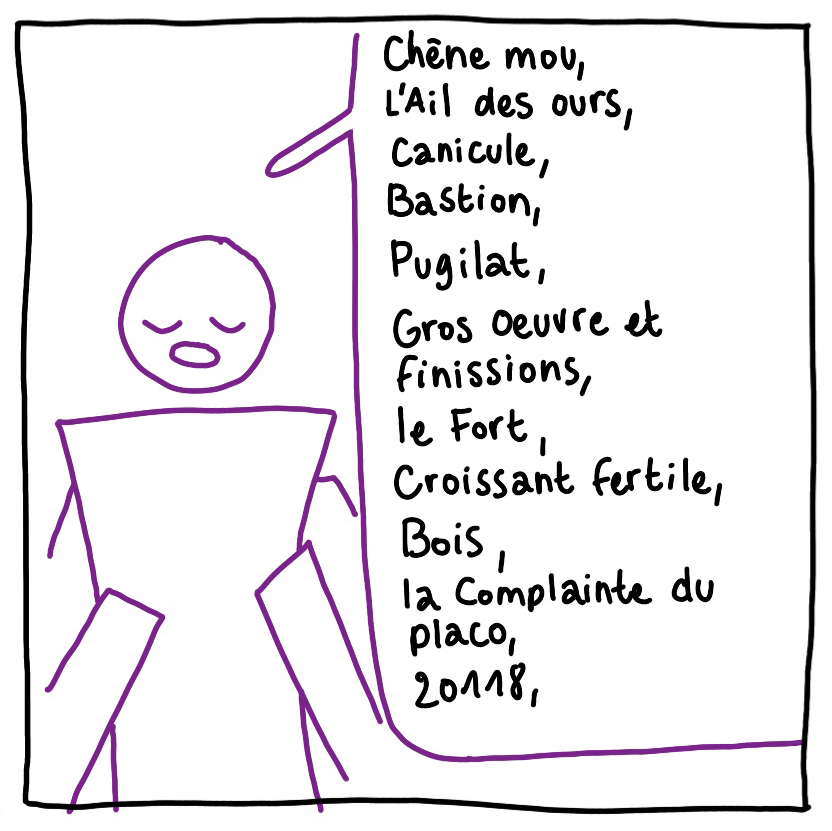 Chêne mou,
L'Ail des ours,
Canicule,
Bastion,
Pugilat,
Gros Oeuvre et
finissions,
le Fort,
Croissant fertile,
Bois,
la Complainte du
placo,
20118,